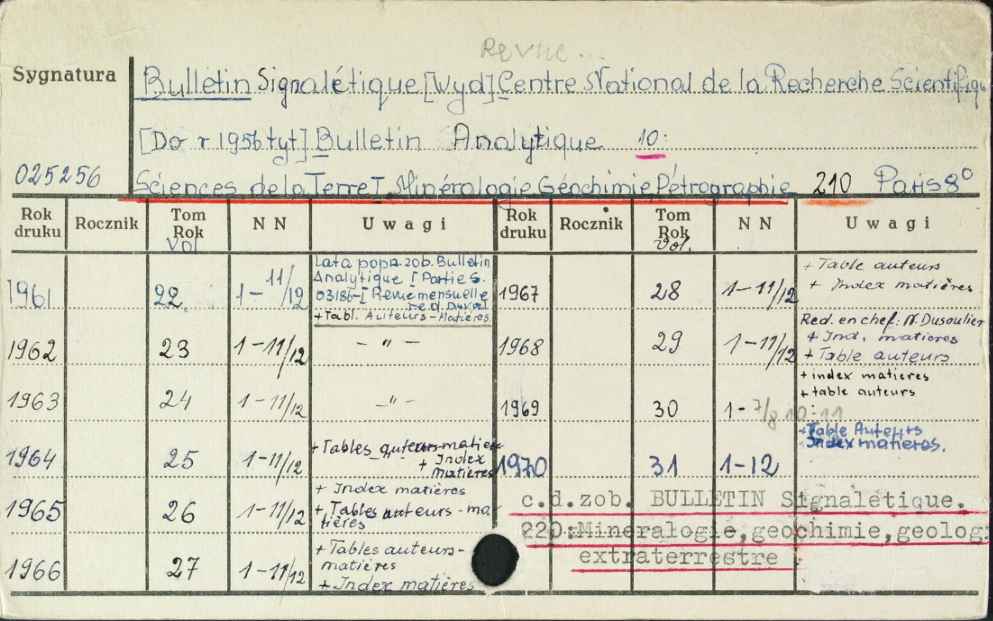 Revue...
Sygnatura
Bulletin Signalétique [Wyd] Centre National de la Recherche Scientifiqu
[Do r 1956 tyt] Bulletin Analytique 10:
025256
Sciences de la Terre I Minéralogie Géochimie Pétrographie 210 Paris 8°
Rok druku Rocznik Tom Rok Vol NN Uwagi Rok druku Rocznik Tom Rok Vol. NN Uwagi
1961 22 1-11/12 Lata popa. zob. Bulletin
Analytique I Partie S.
Revue mensuelle
red. Duval
+ Tabl. Auteurs-Matières
1962 23 1-11/12 - " -
1963 24 1-11/12 - " -
1964 25 1-11/12 + Tables auteurs-matiere
+ Index
matières
1965 26 1-11/12 + Index matières
+ Tables auteurs-ma
tières
1966 27 1-11/12 + Tables auteurs-
matières
+ Index matières
1967 28 1-11/12 + Table auteurs
+ Index matières
1968 29 1-11/12 Red. en chef: N. Dusoulier
+ Ind. matières
+ Table auteurs
1969 30 1-7/8 10-11 + index matieres
+ table auteurs
1970 31 1-12 + Table Auteurs
Index matieres.
c.d.zob. BULLETIN Signalétique.
220:Mineralogie,geochimie,geolog
extraterrestre